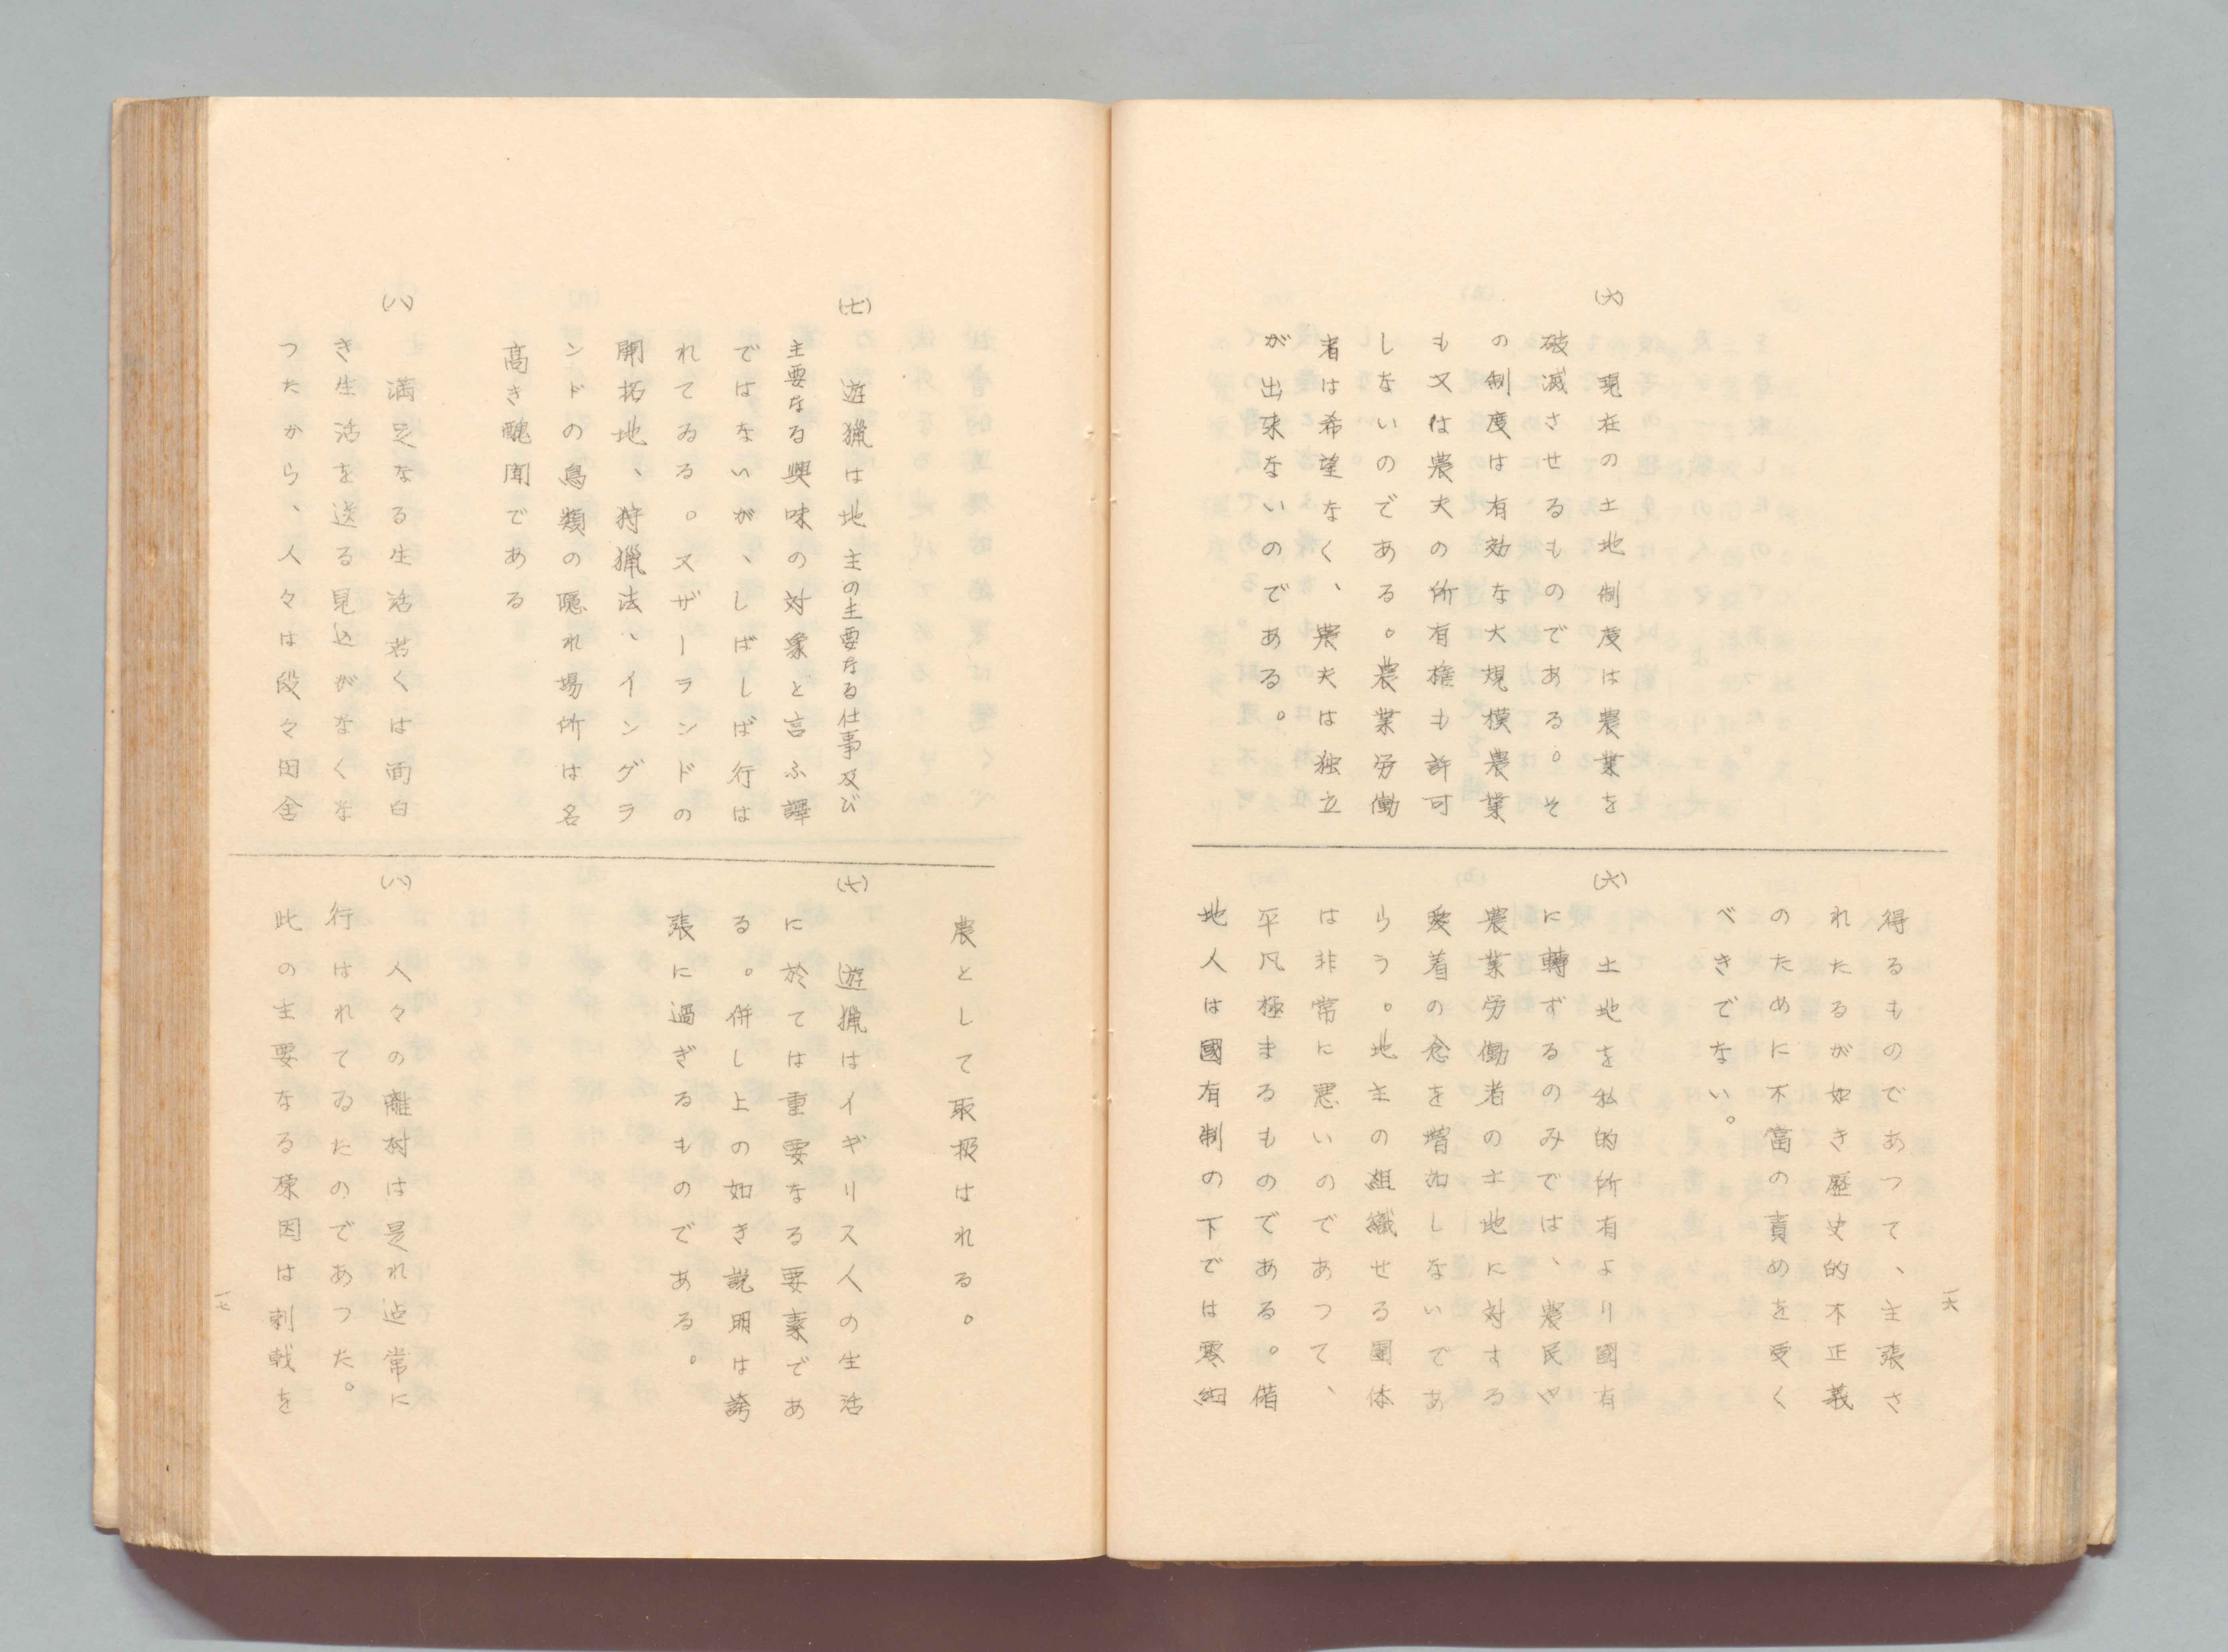 (六)
現在の土地制度は農業を
破滅させるものである。そ
の制度は有効な大規模農業
も又は農夫の所有権も許可
しないのである。農業労働
者は希望なく、農夫は独立
が出来ないのである。
得るものであつて、主張さ
れたるが如き歴史的不正義
のために不富の責めを受く
べきでない。
(六)
土地を私的所有より國有
に轉ずるのみでは、農民や
農業労働者の土地に対する
愛着の念を増加しないであ
らう。地主の組織せる團体
は非常に悪いのであつて、
平凡極まるものである。借
地人は國有制の下では零細
一六
(七)
遊猟は地主の主要なる仕事及び
主要なる興味の対象と言ふ譯
ではないが、しばしば行は
れてゐる。又ザーランドの
開拓地、狩猟法、イングラ
ンドの鳥類の隠れ場所は名
高き醜聞である
(八)
満足なる生活若くは面白
き生活を送る見込がなくな
つたから、人々は段々田舎
農として取扱はれる。
(七)
遊猟はイギリス人の生活
に於ては重要なる要素であ
る。併し上の如き説明は誇
張に過ぎるものである。
(八)
人々の離村は是れ迠常に
行はれてゐたのであつた。
此の主要なる原因は刺戟を
一七